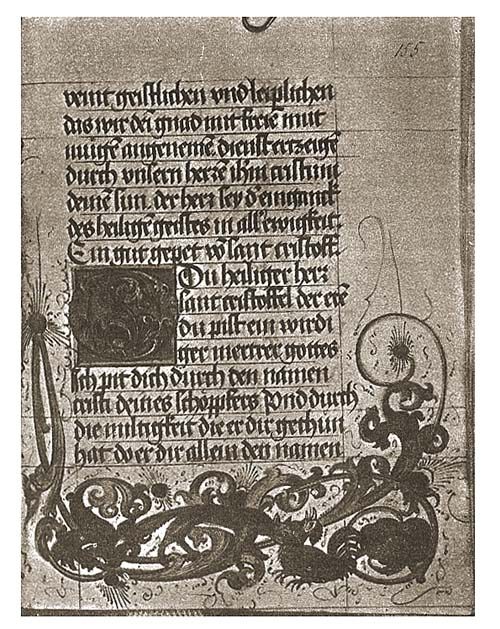 155
veint geistlichen vnd leiplichen
das wir dein gnad mit freie mut
durch vnsern herze ihm cristum
deine sun. der herz sey d eingank
des heilige geistes in all ewigkeit.
Ein gut gepet vo sant cristoff.
Du heiliger herz
sant cristoffel der ere
du pist ein wirdi
ger mertrer gottes
Ich pit dich durch den namen
cristi deines schöpffers vnd durch
die miltigkeit die er dir gethun
hat do er dir allein den namen